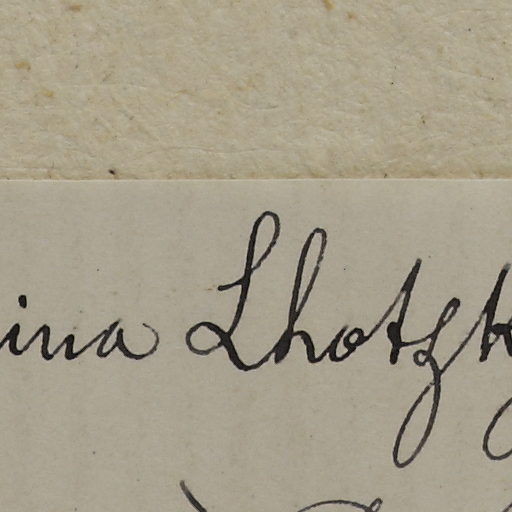 ina Lhotzk